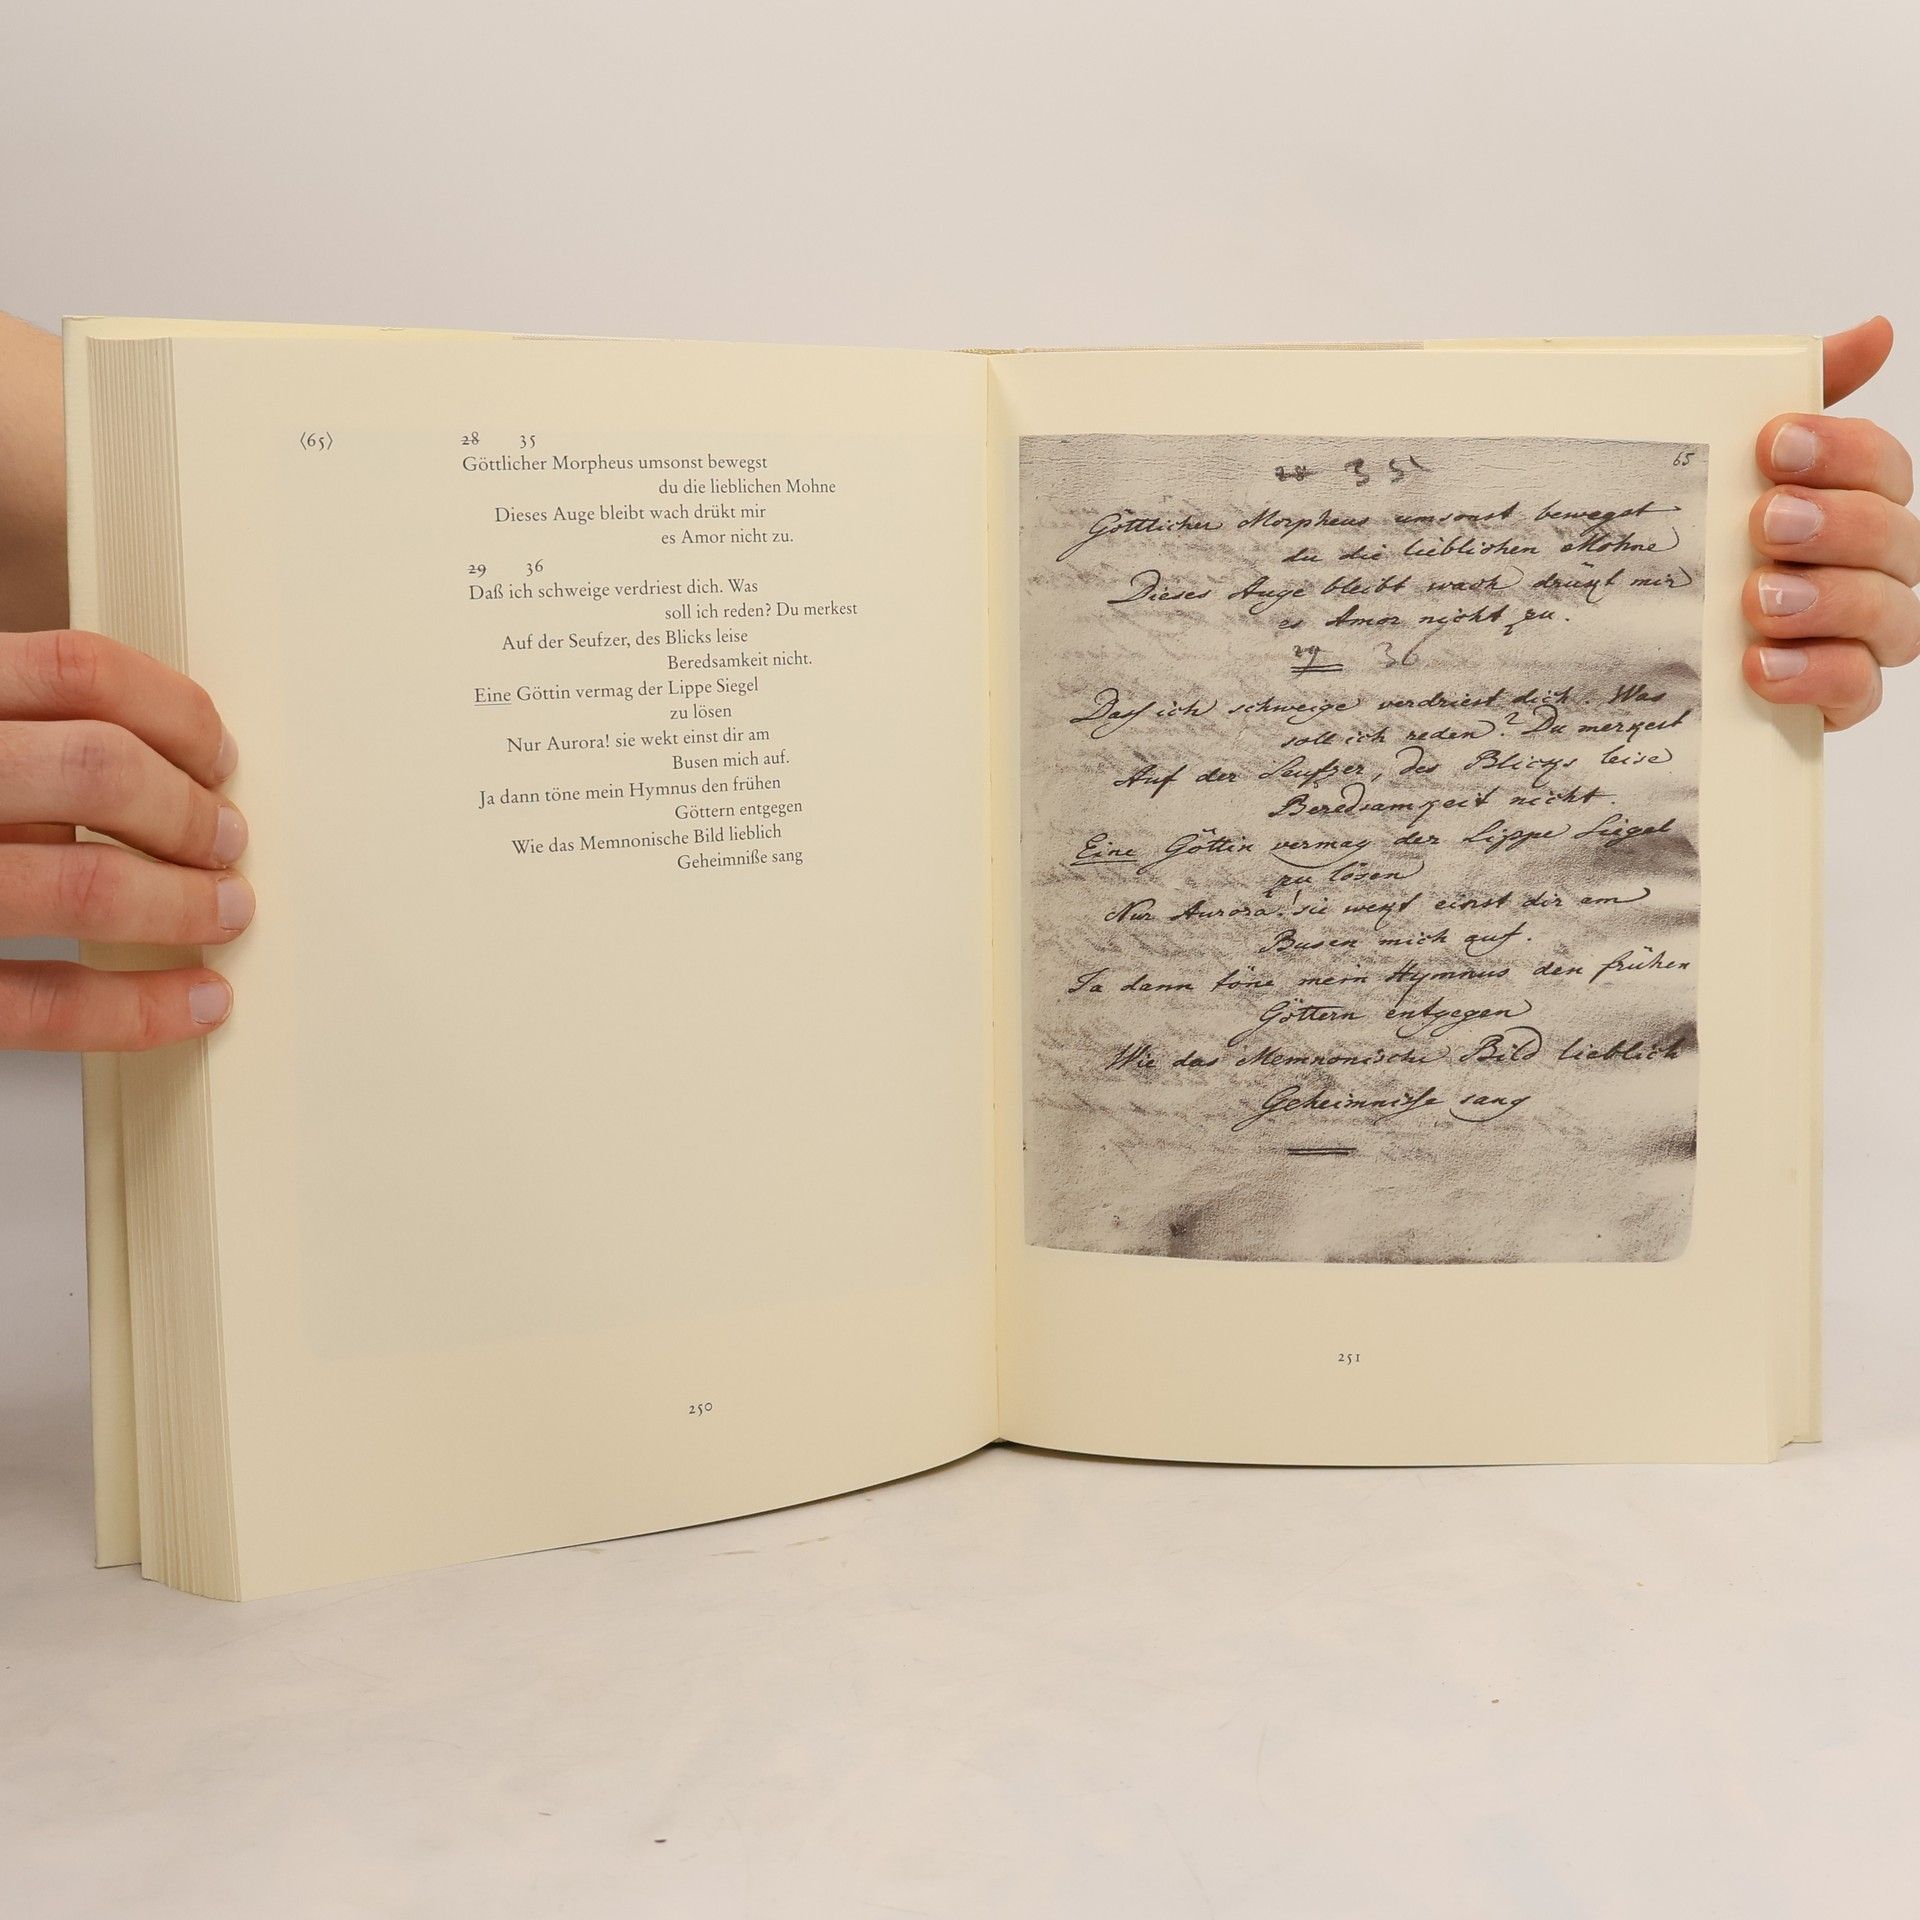 ⟨65⟩
28 35
Göttlicher Morpheus umsonst bewegst
du die lieblichen Mohne
Dieses Auge bleibt wach drükt mir
es Amor nicht zu.
29 36
Daß ich schweige verdriest dich. Was
soll ich reden? Du merkest
Auf der Seufzer, des Blicks leise
Beredsamkeit nicht.
Eine Göttin vermag der Lippe Siegel
zu lösen
Nur Aurora! sie wekt einst dir am
Busen mich auf.
Ja dann töne mein Hymnus den frühen
Göttern entgegen
Wie das Memnonische Bild lieblich
Geheimniße sang
250
65
28 35
Göttlicher Morpheus umsonst bewegst
du die lieblichen Mohne
Dieses Auge bleibt wach drükt mir
es Amor nicht zu.
29 36
Daß ich schweige verdriest dich. Was
soll ich reden? Du merkest
Auf der Seufzer, des Blicks leise
Beredsamkeit nicht.
Eine Göttin vermag der Lippe Siegel
zu lösen
Nur Aurora! sie wekt einst dir am
Busen mich auf.
Ja dann töne mein Hymnus den frühen
Göttern entgegen
Wie das Memnonische Bild lieblich
Geheimniße sang
251